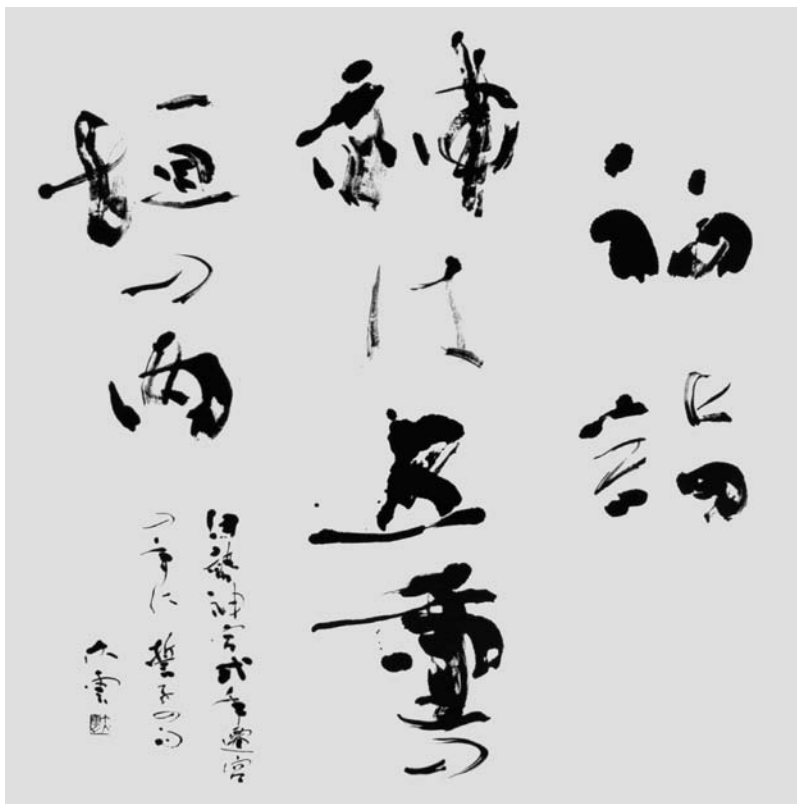 初詣
神は五重の
垣の内
伊勢神宮式年遷宮
の年に 誓子の句
大雲